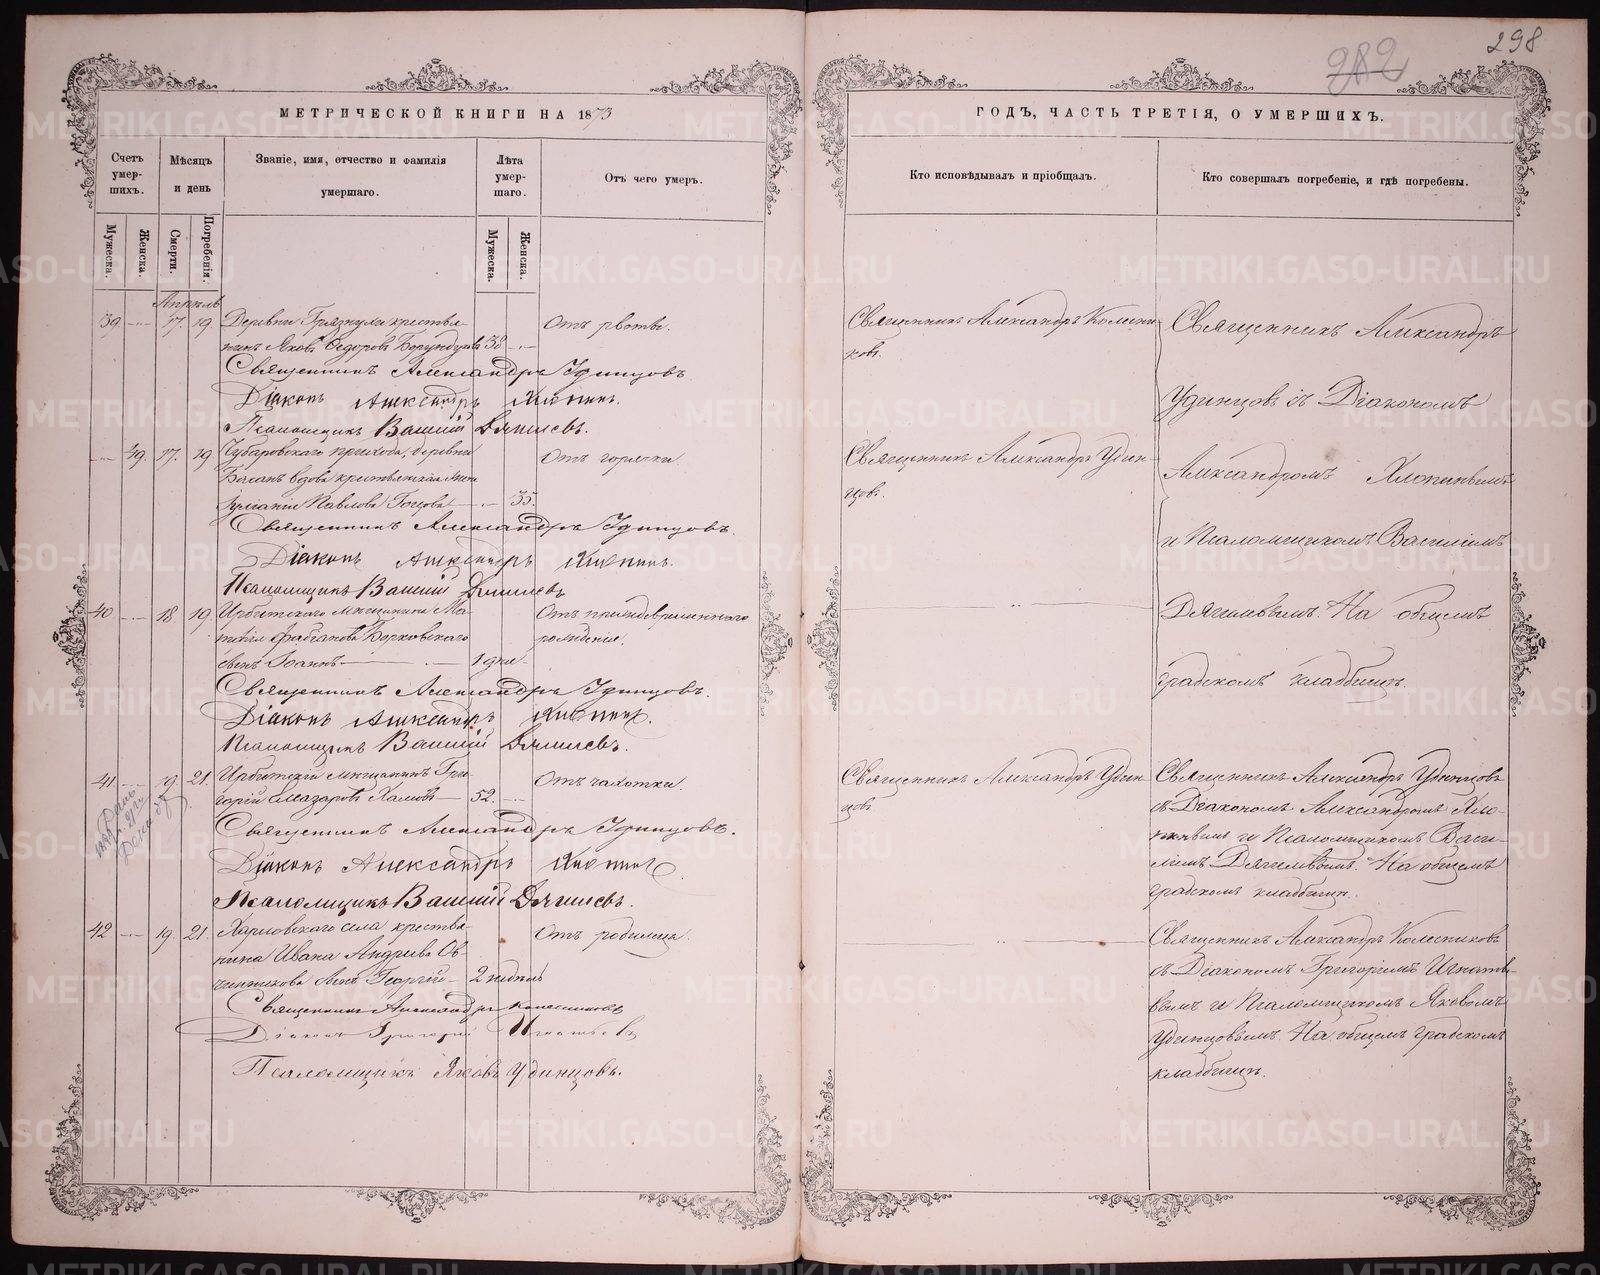 298
282
МЕТРИЧЕСКОЙ КНИГИ НА 1873
ГОДЪ, ЧАСТЬ ТРЕТІЯ, О УМЕРШИХЪ.
Счетъ умер-
шихъ.
Мѣсяцъ
и день
Званіе, имя, отчество и фамилія
умершаго.
Лѣта
умер-
шаго.
Отъ чего умеръ.
Кто исповѣдывалъ и пріобщалъ.
Кто совершалъ погребеніе, и гдѣ погребены.
Мужеска.
Женска.
Смерти.
Погребенія.
Мужеска.
Женска.
Апрѣль
39. 17. 19. Деревни Грязнухи крестья-
нинъ Яковъ Ѳедоровъ 38 Отъ рвоты.
Священникъ Александръ Удинцовъ
Діаконъ Александръ Хлопинъ.
Псаломщикъ Василій Дягилевъ.
Священникъ Александръ Колесни-
ковъ.
49. 17. 19 Чубаровскаго прихода, деревни
вдова крестьянская жена
Павлова 35. Отъ горячки
Священникъ Александръ Удинцовъ.
Діаконъ Александръ Хлопинъ.
Псаломщикъ Василій Дягилевъ
Священникъ Александръ Удин-
цовъ.
40 18 19 Ирбитскаго мѣщанина Ма-
Борковскаго
сынъ Іоаннъ 1 дня Отъ преждевременнаго
рожденія.
Священникъ Александръ Удинцовъ.
Діаконъ Александръ Хлопинъ.
Псаломщикъ Василій Дягилевъ.
Священникъ Александръ
Удинцовъ съ Діакономъ
Александромъ Хлопинымъ
и Псаломщикомъ Василіемъ
Дягилевымъ. На общемъ
градскомъ кладбищѣ.
41 19. 21. Ирбитскій мѣщанинъ Гри-
горій Назаровъ 52. Отъ чахотки.
Священникъ Александръ Удинцовъ.
Діаконъ Александръ Хлопинъ.
Псаломщикъ Василій Дягилевъ.
Священникъ Александръ Удин-
цовъ
Священникъ Александръ Удинцовъ
съ Діакономъ Александромъ Хло-
пинымъ и Псаломщикомъ Васи-
ліемъ Дягилевымъ. На общемъ
градскомъ кладбищѣ.
42 19. 21. Харловскаго села крестья-
нина Ивана Андреева Ов-
чинникова сынъ Георгій 2 недѣль Отъ родимца.
Священникъ Александръ Колесниковъ
Діаконъ Григорій Игнатьевъ
Псаломщикъ Яковъ Удинцовъ.
Священникъ Александръ Колесниковъ
съ Діакономъ Григоріемъ Игнатье-
вымъ и Псаломщикомъ Яковомъ
Удинцовымъ. На общемъ градскомъ
кладбищѣ.
METRIKI.GASO-URAL.RU